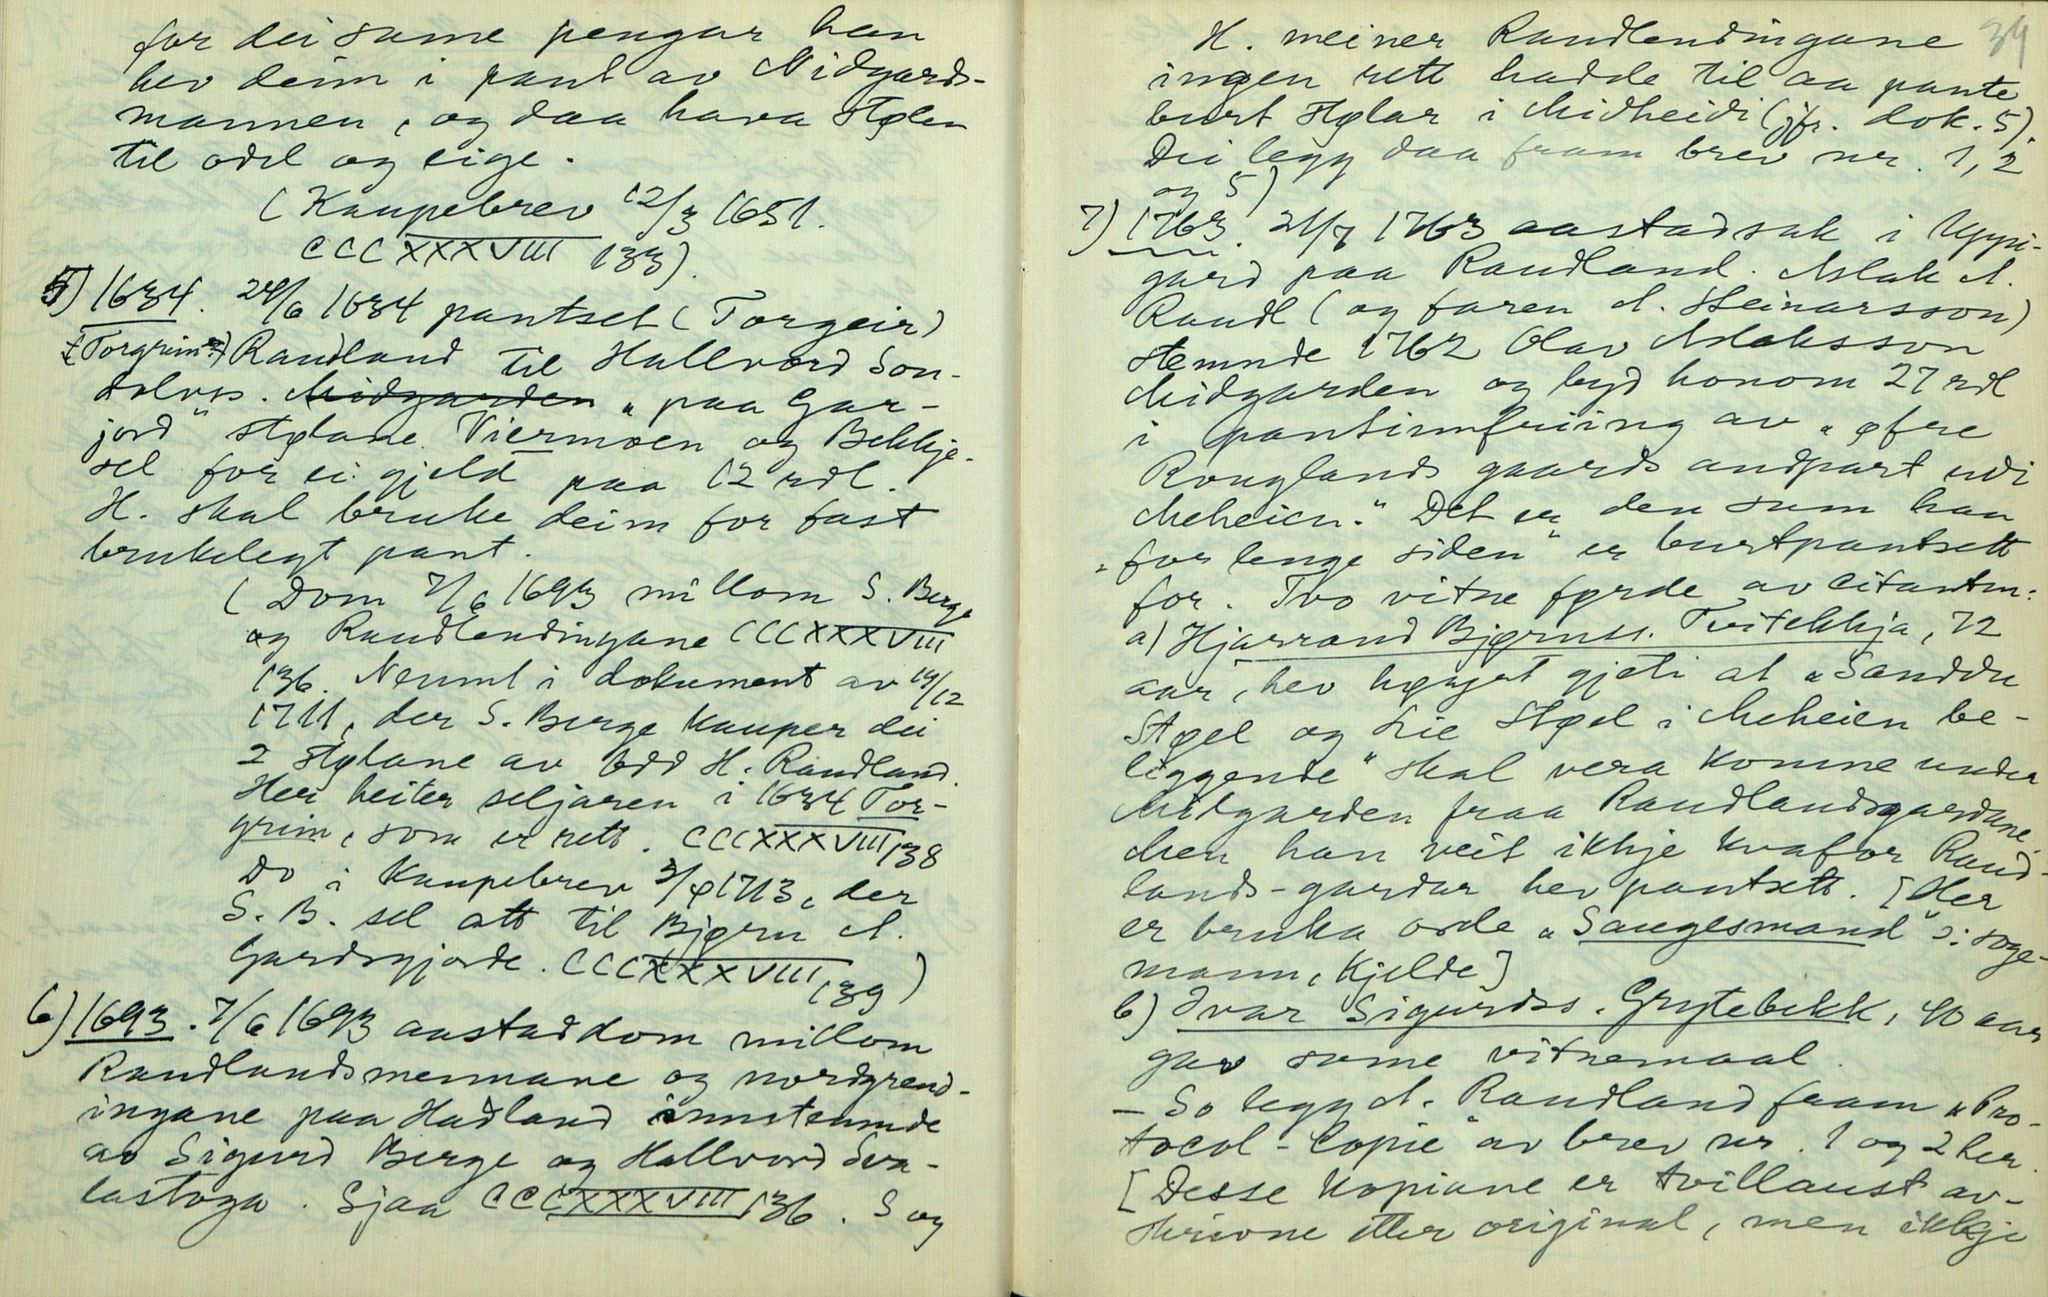 for dei same pengar han
hev deim i pant av Nidgards-
mannen, og daa hava stølen
til odel og eige.
(Kaupebrev 12/3 1651.
CCCXXXVIII 133).
5) 1634. 24/6 1634 pantset (Torgeir)
(Torgrim) Raudland til Hallvord Son-
dolvss. Midgarden „paa Gar-
jord" stølane Viermoen og Bekkje-
sel for ei gjeld paa 12 rdl.
H. skal bruke deim for fast
brukelegt pant.
(Dom 7/6 1693 millom S. Berge
og Raudlendingane CCCXXXVIII
136. Nemnt i dokument av 19/12
1711, der S. Berge kauper dei
2 stølane av Odd H. Raudland.
Her heiter seljaren i 1634 Tor-
grim, som er rett. CCCXXXVIII 138
Do i Kaupebrev 3/9 1713, der
S. B. sel att til Bjørn A.
Gardsgjorde. CCCXXXVIII 139)
6) 1693. 7/6 1693 aastaddom millom
Raudlandsmennane og nordgrend-
ingane paa Hadland innstemnde
av Sigurd Berge og Hallvord Sva-
lastoga. Sjaa CCCXXXVIII 136. S og
34
H. meiner Raudlendingane
ingen rett hadde til aa pante
burt stølar i Midheidi (jfr. dok. 5).
Dei legg daa fram brev nr. 1, 2
og 5)
7) 1763. 21/7 1763 aastadsak i Uppi-
gard paa Raudland. Aslak A.
Raudl (og faren A. Steinarsson)
stemnde 1762 Olav Aslaksson
Midgarden og byd honom 27 rdl
i pantinnfriing av „øfre
Rouglands gaards andpart udi
Meheien." Det er den som han
„for lenge siden" er burtpantsett
for. Tvo vitne førde av citanten:
a) Hjarrand Bjørnss. Tveitekkja, 72
aar, hev høyrt gjeti at „Sanddu
Støel og Lie Støel i Meheien be-
liggende" skal vera komne under
Midgarden fraa Raudlandsgardane.
Men han veit ikkje kvafor Raud-
lands-gardar hev pantsett. [Her
er bruka orde „Saugesmand" ɔ: soge-
mann, kjelde]
b) Ivar Sigurdss. Grytebekk, 40 aar
gav same vitnemaal.
– So legg A. Raudland fram „Pro-
tocol-Copie" av brev nr. 1 og 2 her.
[Desse kopiane er tvillaust av-
skrivne etter original, men ikkje